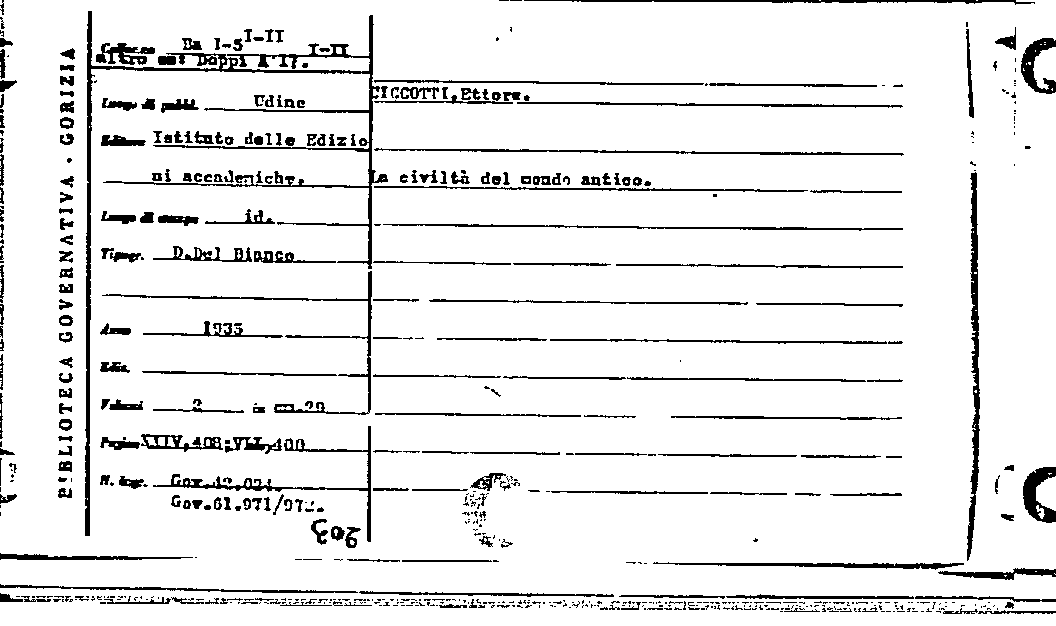 BIBLIOTECA GOVERNATIVA · GORIZIA
Ba I-5 I-II I-II
Altro es: Doppi A 17.
Luogo di pubbl. Udine
CICCOTTI, Ettore.
Editore Istituto delle Edizio
ni accademiche.
La civiltà del mondo antico.
Luogo di stampa id.
Tipogr. D.Del Bianco
Anno 1935
Ediz.
Volumi 2 in cm.20
Pagine XXIV,408;VII,400
N. ingr. Gov.
Gov.61.971/972.
203